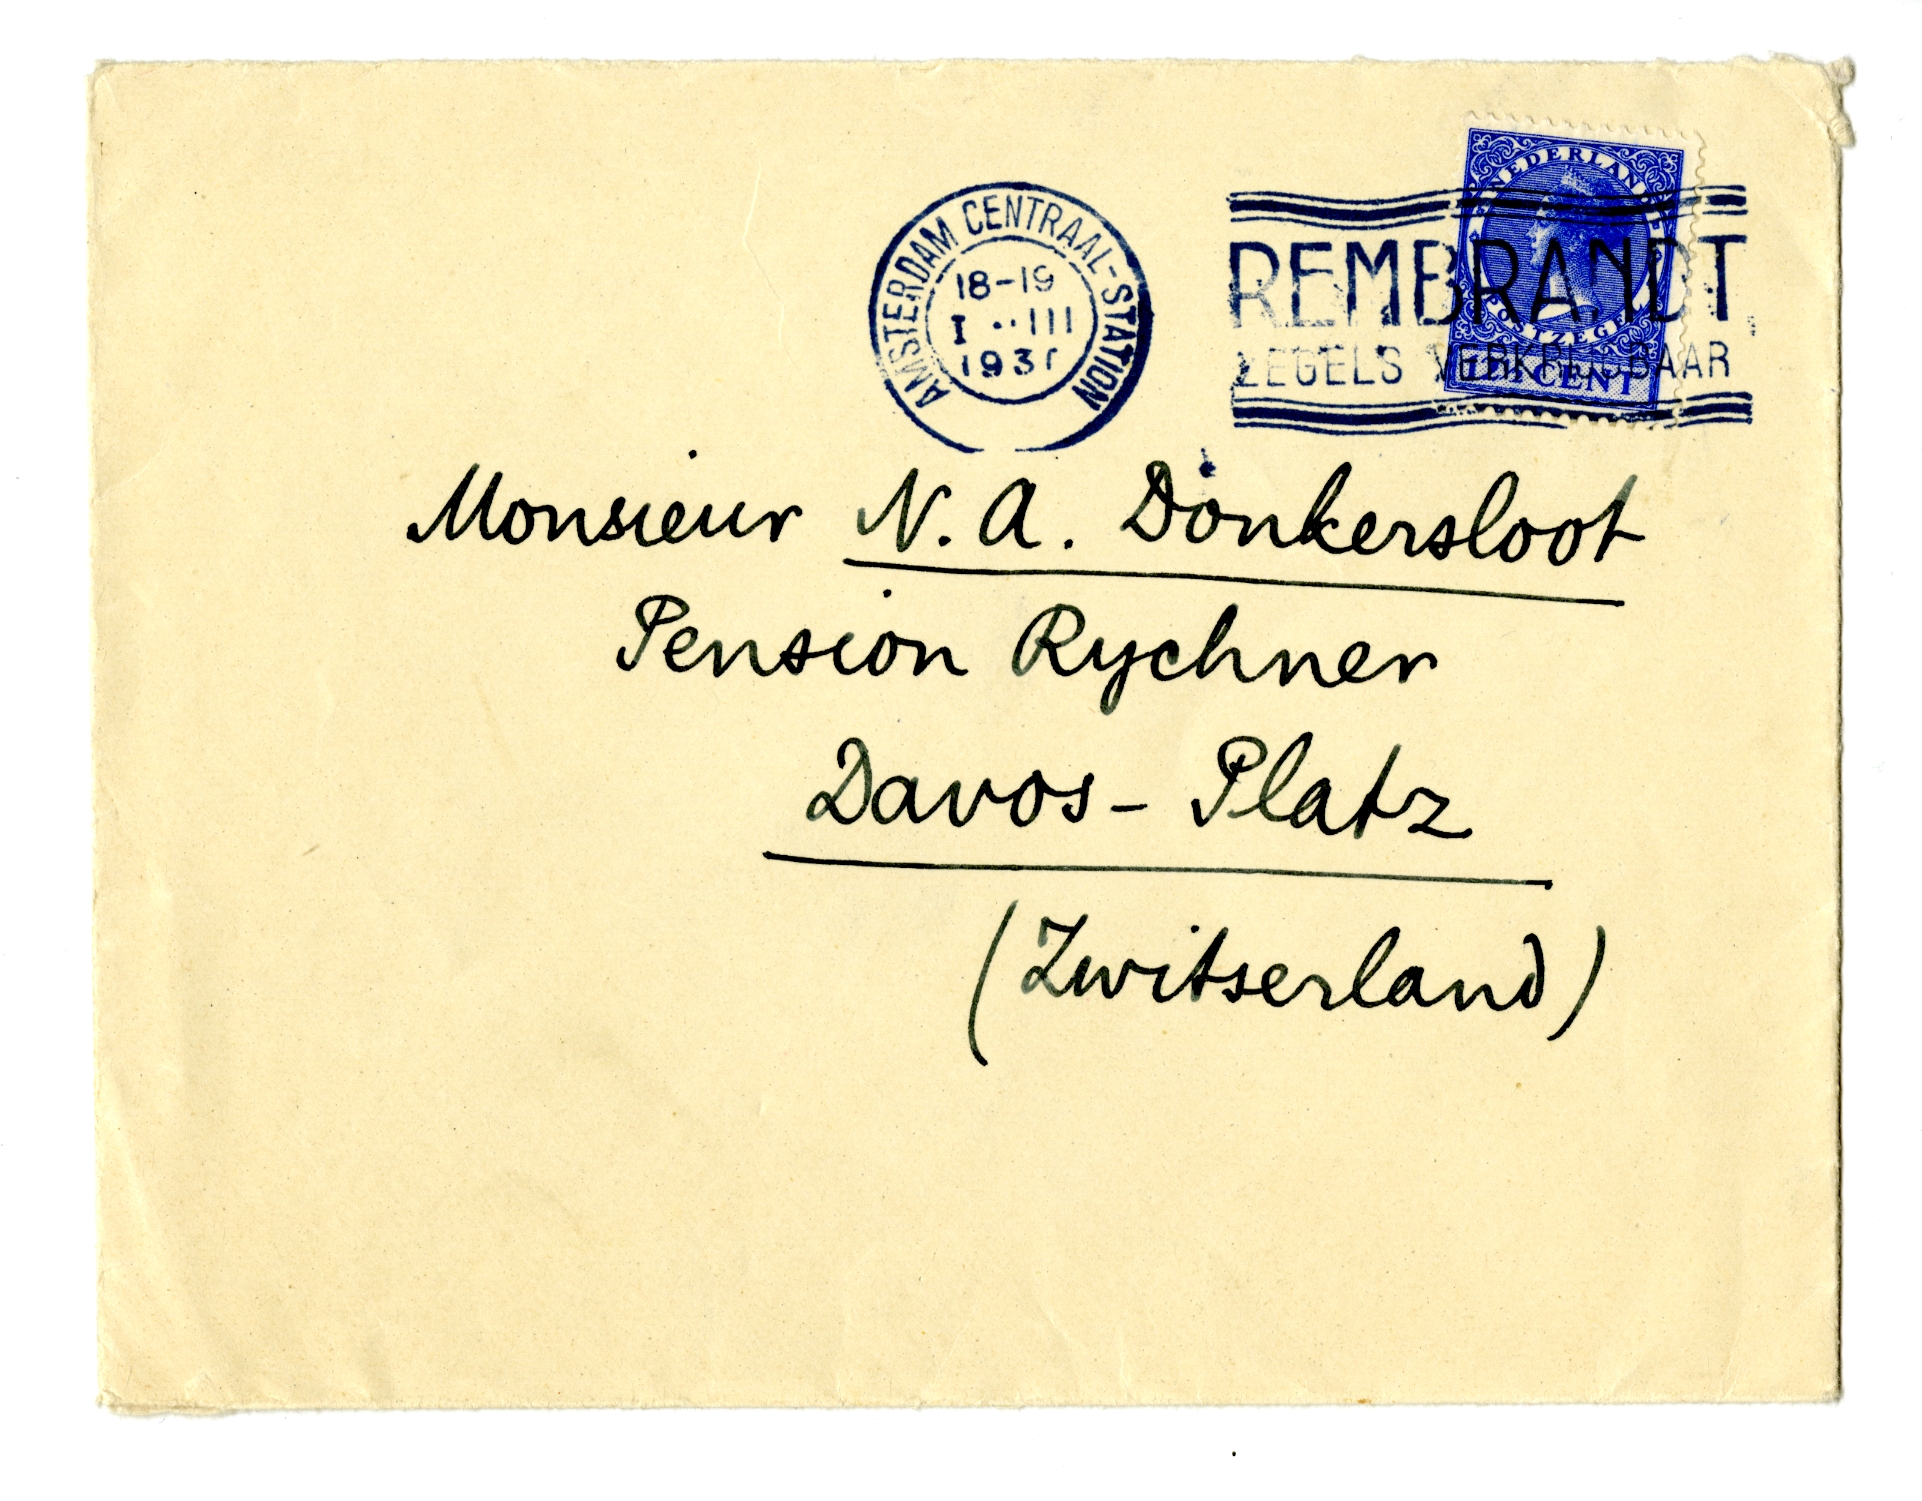 AMSTERDAM CENTRAAL-STATION
18-19
I ··III
1931
NEDERLAND
POSTZEGEL
CENT
REMBRANDT
ZEGELS VERKRIJGBAAR
Monsieur N. A. Donkersloot
Pension Rychner
Davos - Platz
(Zwitserland)